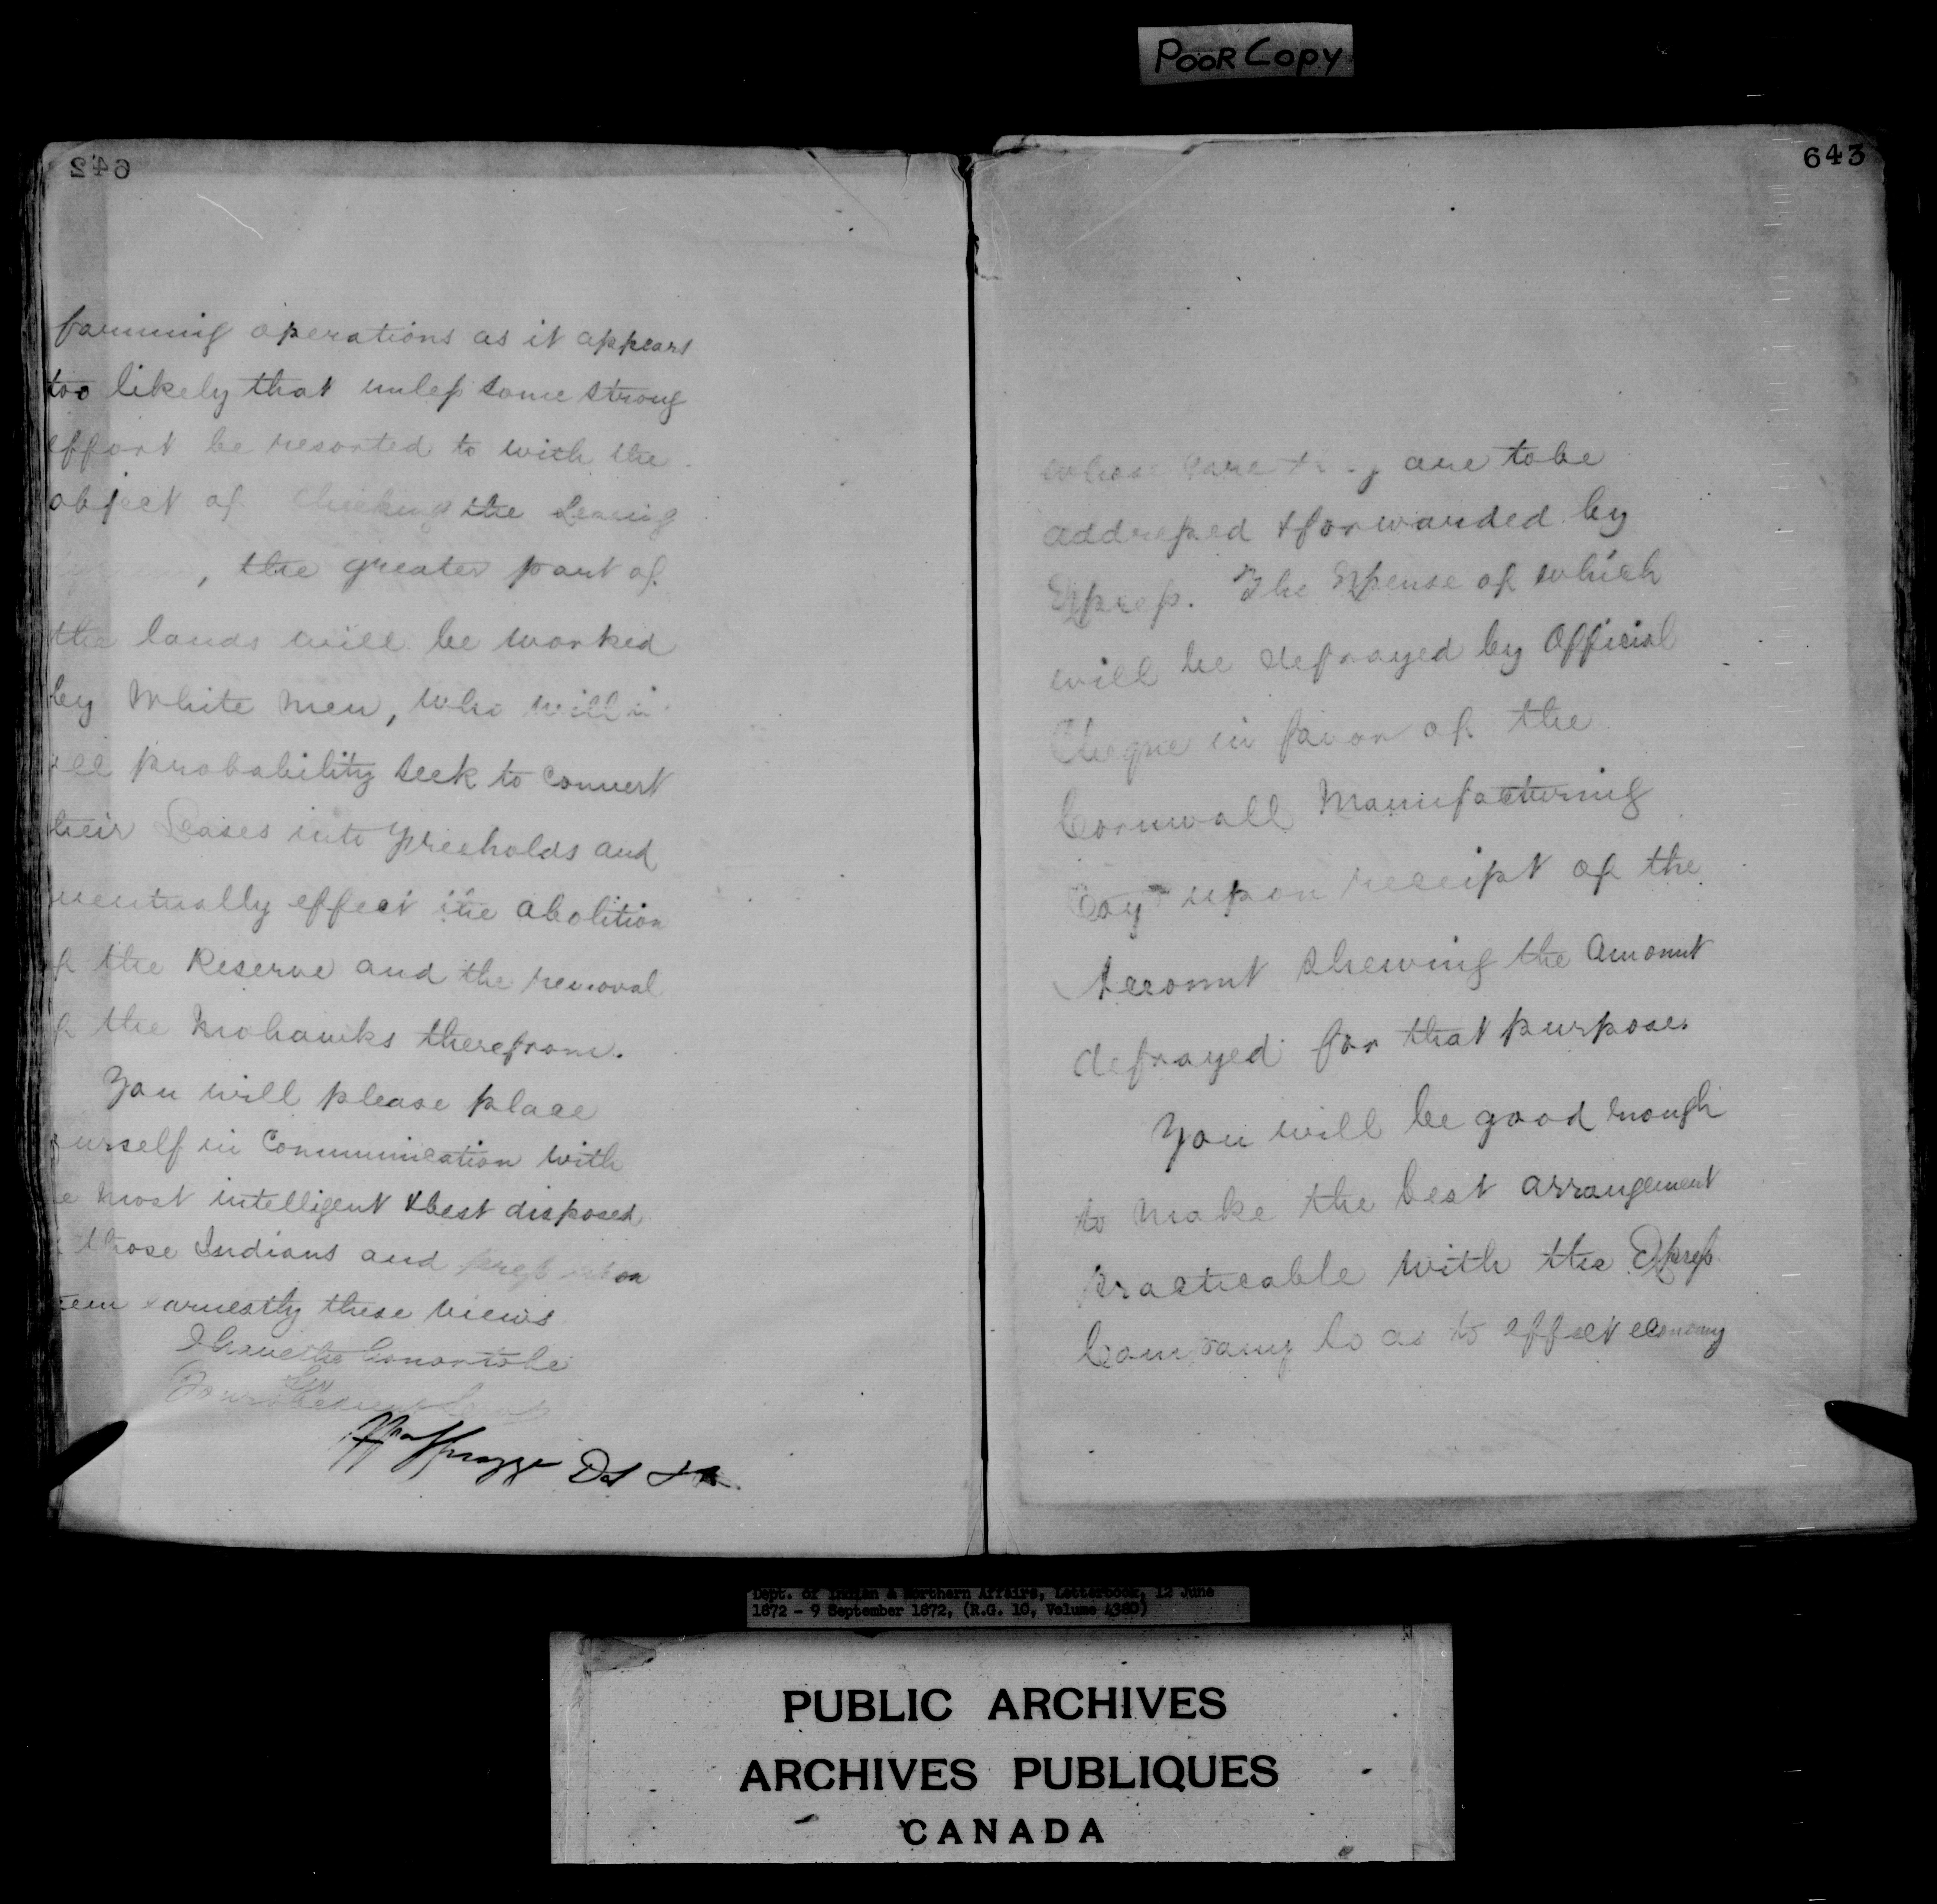 POOR Copy
642
farming operations as it appears
too likely that unless some strong
effort be resorted to with the
object of checking the Leasing
, the greater part of
the lands will be worked
by White men, who will i
all probability seek to convert
their Leases into Freeholds and
eventually effect the abolition
of the Reserve and the removal
of the Mohawks therefrom.
You will please place
ourself in Communication with
e most intelligent & best disposed
those Indians and press upon
em earnestly these views
I have the honor to be
Sir
Your
Spragge
643
whose care they are to be
addressed & forwarded by
Express. The Expense of which
will be defrayed by Official
Cheque in favor of the
Cornwall Manufacturing
Coy upon receipt of the
Account shewing the Amount
defrayed for that purpose.
You will be good enough
to make the best arrangement
practicable with the Express
Company so as to effect economy
Dept. of Indian & Northern Affairs, Letterbook, 12 June
1872 - 9 September 1872, (R.G. 10, Volume 4380)
PUBLIC ARCHIVES
ARCHIVES PUBLIQUES
CANADA